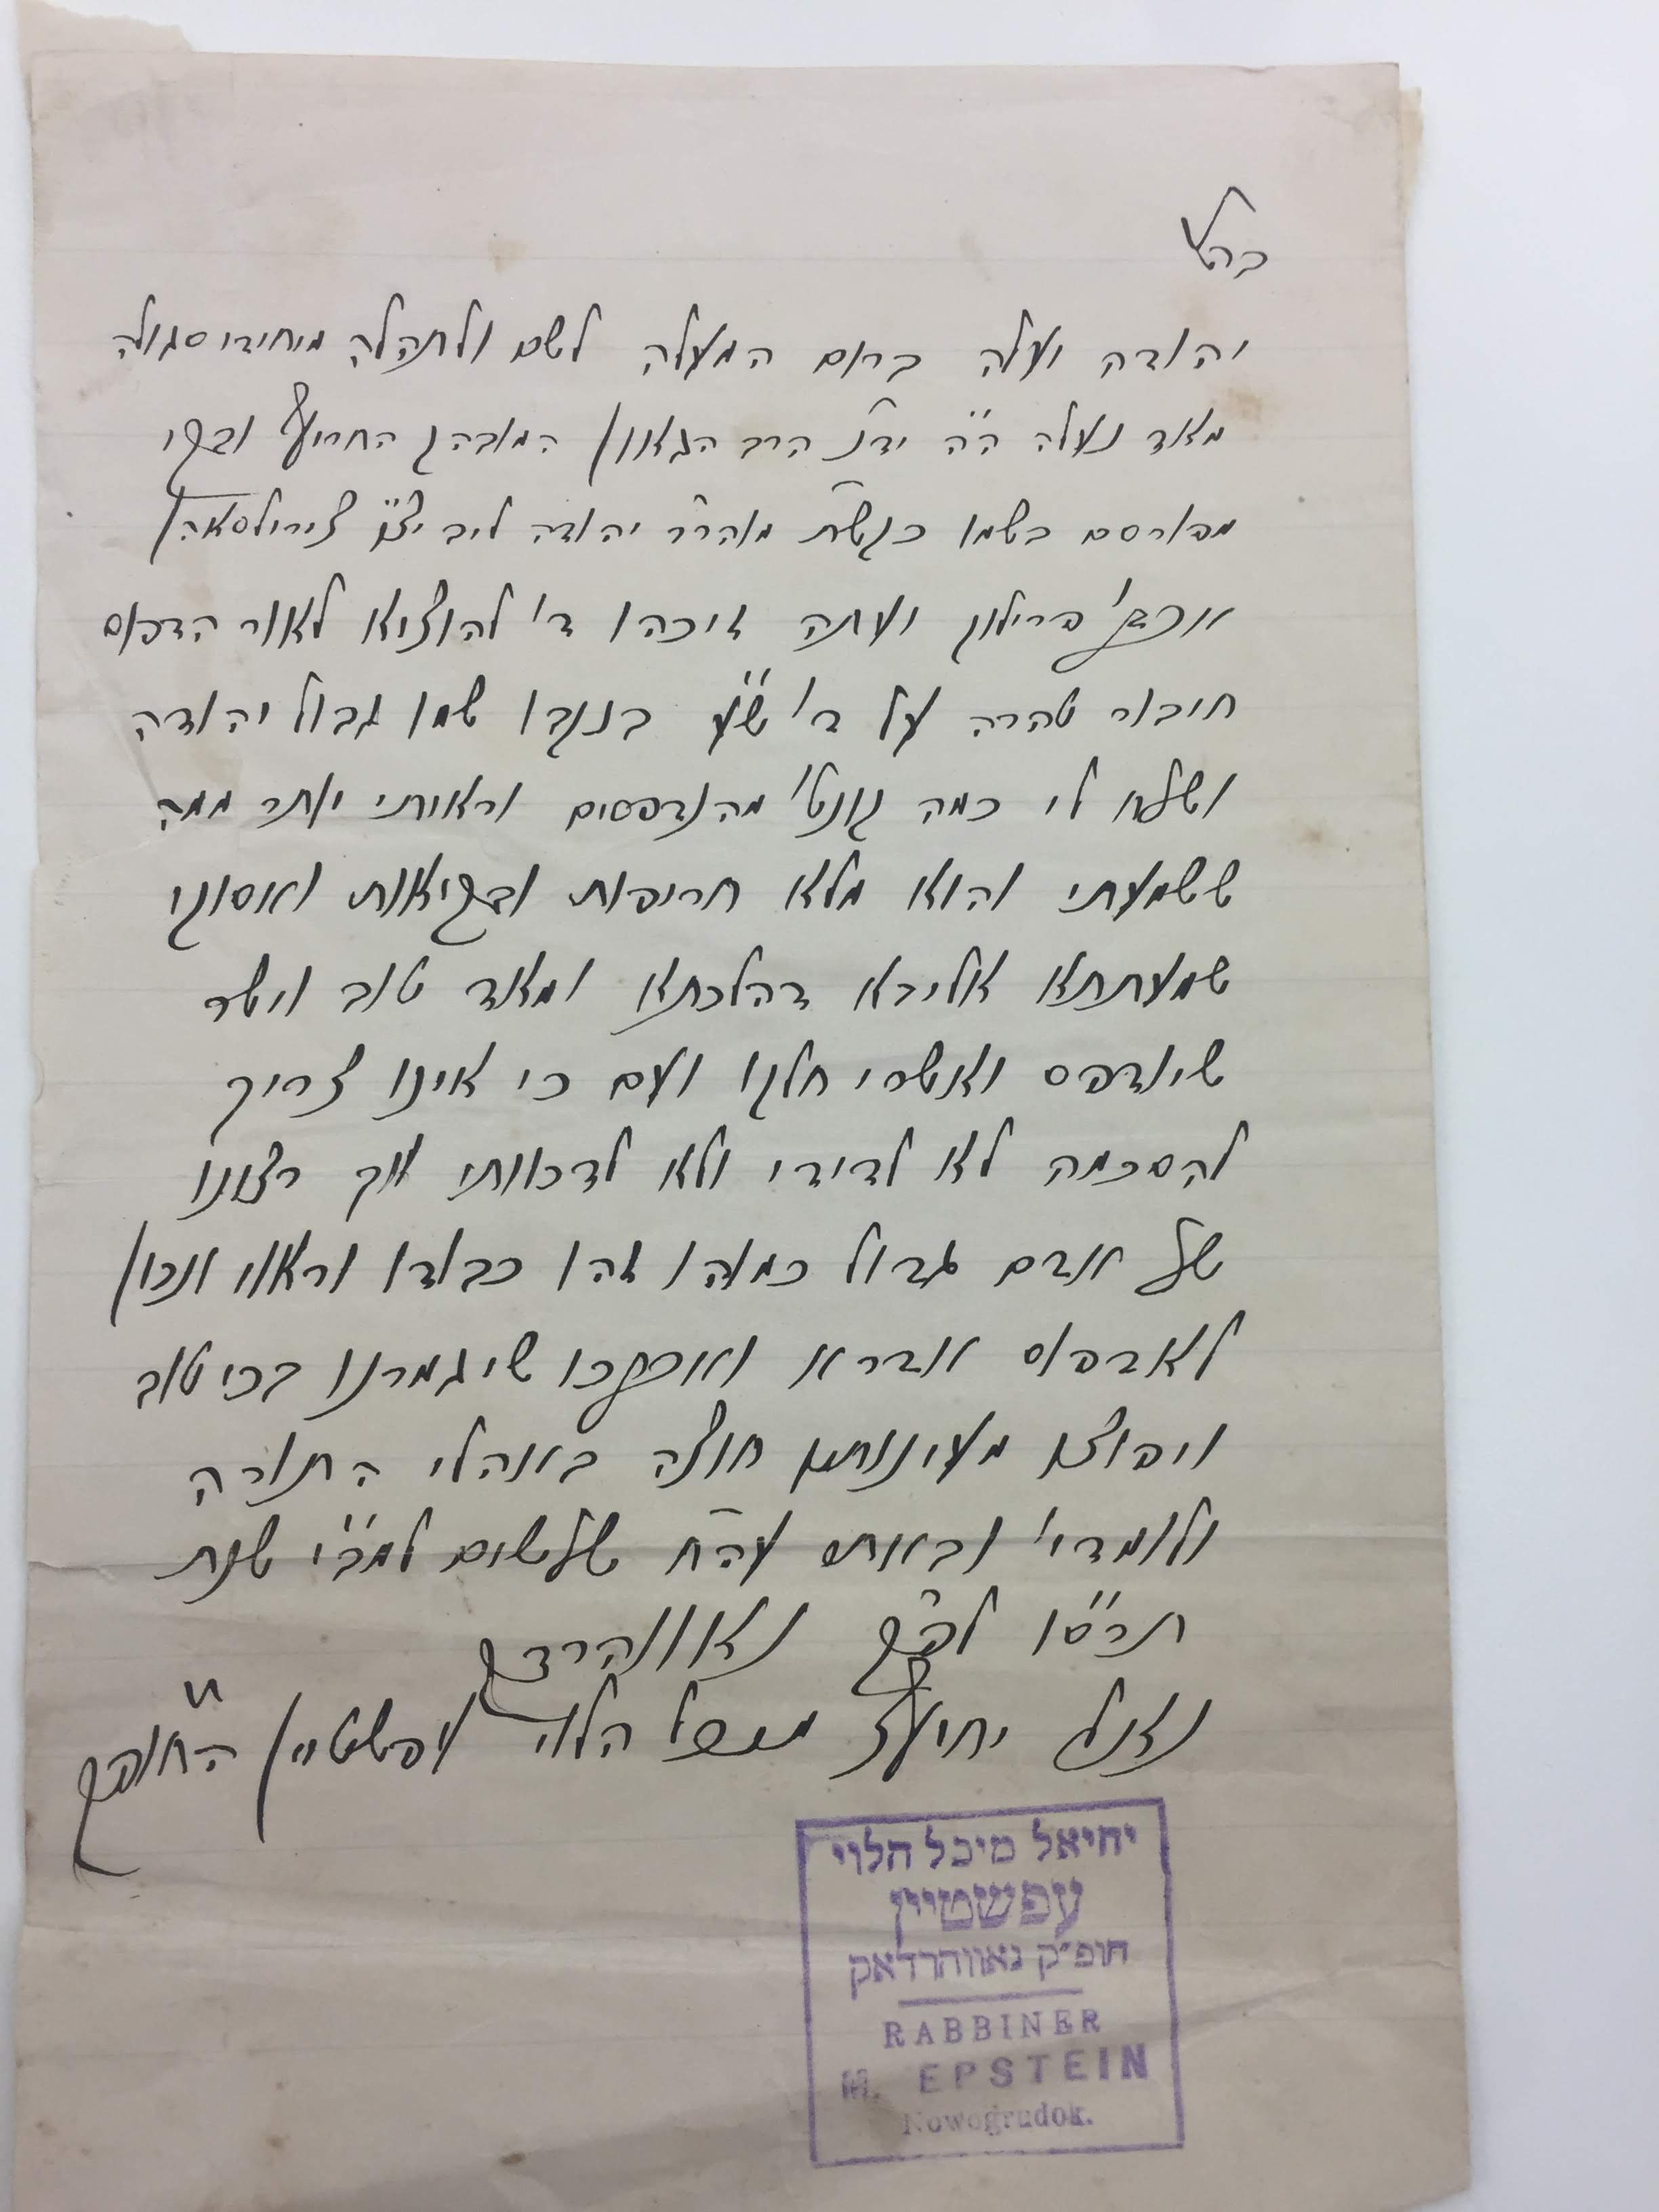 בהי"ת
יהודה ועלה ברום המעלה לשם ולתהלה מיחידי סגולה
מאד נעלה ה"ה ידי"נ הרב הגאון המובהק החריף ובקי
מפורסם בשמו כגש"ת מוהר"ר יהודה ליב יצ"ו צירילסאהן
אבד"ק פרילוק ועתה זיכהו ד' להוציא לאור הדפוס
חיבור טהרה על ד' ש"ע בנקבו שמו גבול יהודה
ושלח לי כמה קונט' מהנדפסים וראיתי יותר ממה
ששמעתי והוא מלא חריפות ובקיאות ואסוקי
שמעתתא אליבא דהלכתא ומאד טוב וישר
שיודפס ואשרי חלקו ועם כי אינו צריך
להסכמה לא לדידי ולא לדכוותי אך רצונו
של אדם גדול כמוהו זהו כבודו וראוי ונכון
לאדפוס אדרא ואברכהו שיגמרנו בכי טוב
ויפוצו מעינותיו חוצה באהלי התורה
ולומדי' ובאתי עה"ח שלשים למב"י שנת
תרס"ו לפ"ק נאווהרדק
נאנל יחיאל מיכל הלוי עפשטיין החופ"ק
יחיאל מיכל הלוי
עפשטיין
חופ״ק נאווהרדאק
RABBINER
M. EPSTEIN
Nowogrudok.